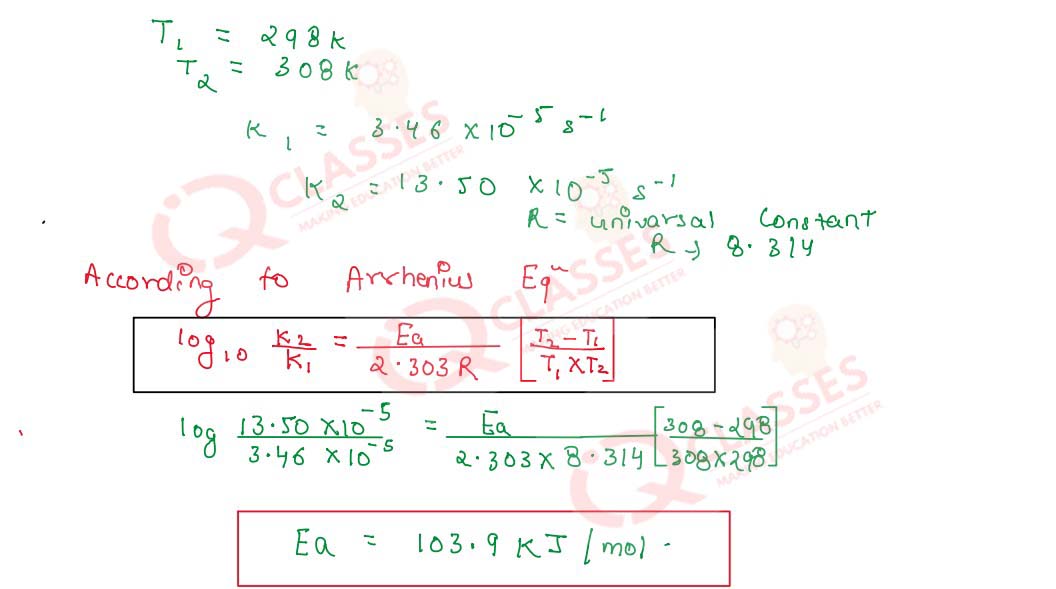 T₁ = 298K
T₂ = 308K
K₁ = 3.46 ×10⁻⁵ s⁻¹
K₂ = 13.50 ×10⁻⁵ s⁻¹
R = univarsal Constant
R → 8.314
According to Arrhenius Eqⁿ
log₁₀ K₂/K₁ = Ea/2.303 R [T₂ - T₁/T₁ × T₂]
log 13.50 ×10⁻⁵/3.46 ×10⁻⁵ = Ea/2.303 × 8.314 [308 - 298/308×298]
Ea = 103.9 KJ /mol .
IQ CLASSES
MAKING EDUCATION BETTER
IQ CLASSES
MAKING EDUCATION BETTER
IQ CLASSES
MAKING EDUCATION BETTER